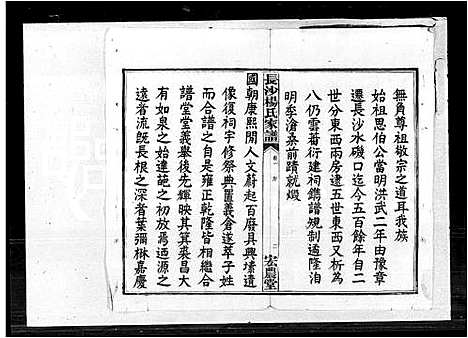 無角尊祖椒宗之道耳我族
始祖思伯公當明洪武二年由豫章
遷長沙水磯口迄今五百餘年自二
世分東西兩房逮五世東西又析為
八仍雲蕃衍建祠鐫譜規制遹隆洎
明季滄桑前蹟就燬
長沙楊氏家譜
卷一
序
宏農堂
國朝康熙閒人文蔚起百廢具興塑遺
像復祠宇修祭典置義倉遂萃子姓
而合訂之自是雍正乾隆皆相繼合
譜堂堂義舉後先輝映其箕裘昌大
有如泉之始達葩之初放焉迺源之
遠者流旣長根之深者葉彌楙嘉慶